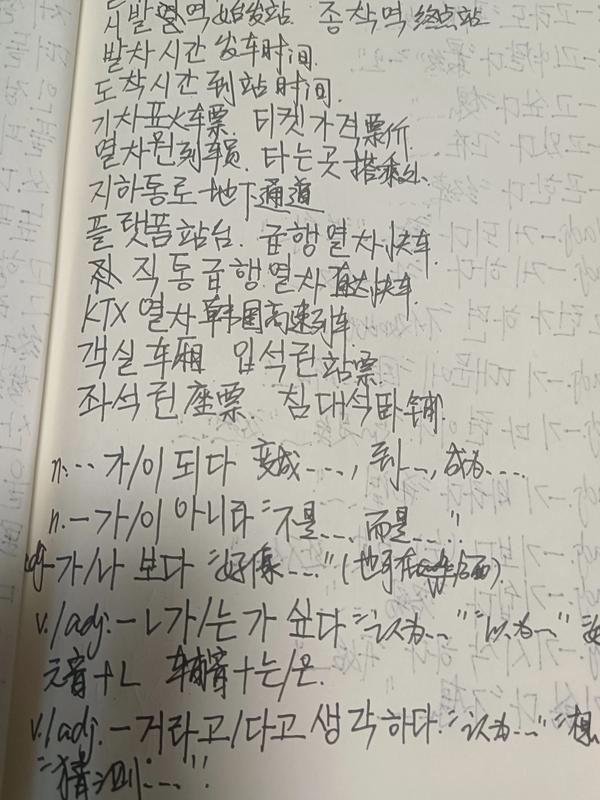 시발역 始发站. 종착역 终点站
발차시간 发车时间.
도착시간 到站时间.
기차표火车票. 티켓가격票价.
열차원列车员. 타는곳 搭乘处.
지하통로 地下通道
플랫폼站台. 급행열차快车.
직통급행열차 直达快车.
KTX 열차 韩国高速列车.
객실 车厢 입석권站票.
좌석권座票. 침대석卧铺.
n.…가/이 되다 变成…, 到…, 成为…
n.—가/이 아니라 "不是… 而是…"
adj—가/나 보다 "好像…" (也可在后面).
v./adj.—ㄴ가/는가 싶다 "认为…" "以为…"
元音+ㄴ 辅音+는/은.
v./adj.—거라고/다고 생각하다. "认为…" "想
"猜测…"